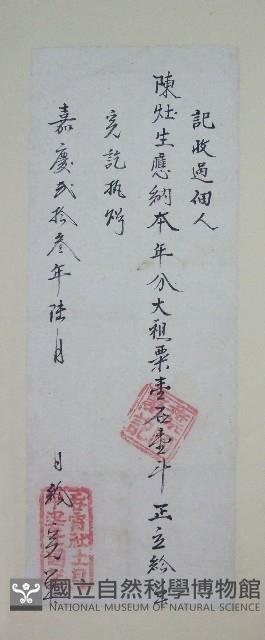 記收過佃人
陳灶生應納本年分大租粟壹石壹斗正立給
完訖執炤
嘉慶貳拾叁年陸月 日
國立自然科學博物館
NATIONAL MUSEUM OF NATURAL SCIENCE